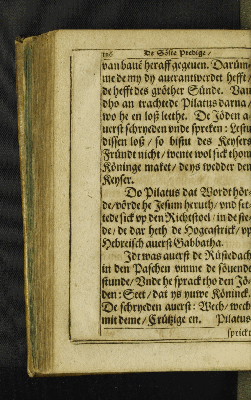 De Söste Predige /
van bauē heraff gegeuen. Darüm-
me de my dy auerantwerdet hefft /
de hefft des gröther Sünde. Van
dho an trachtede Pilatus darna /
wo he en loß leethe. De Jöden a-
uerst schryeden vnde spreken : Lestu
dissen loß / so bistu des Keysers
Fründt nicht / wente wol sick thom
Köninge maket / de ys wedder den
Keyser.
Do Pilatus dat Wordt hör-
de / vörde he Jesum heruth / vnd set-
tede sick vp den Richtstoel / in de ste-
de / de dar heth de Hogeastrick / vp
Hebreisch auerst Gabbatha.
Jdt was auerst de Rüstedach
in den Paschen vmme de söuende
stunde / Vnd he sprack tho den Jö-
den : Seet / dat ys yuwe Köninck.
De schryeden auerst : Wech / wech
mit deme / Crützige en. Pilatus
sprickt